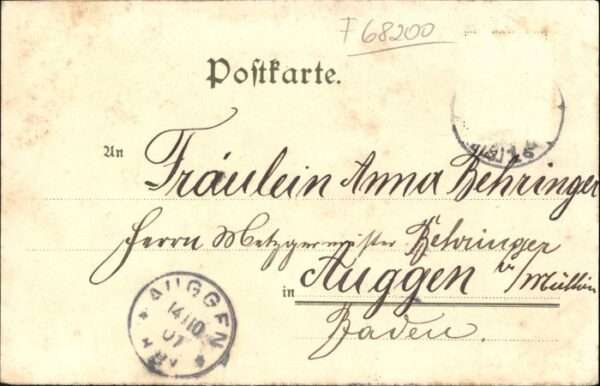 F 68200
Postkarte.
An
Fräulein Anna Behringer
Herrn Metzgermeister Behringer
in Auggen b/Müllh
Baden.
AUGGEN
14 10
01